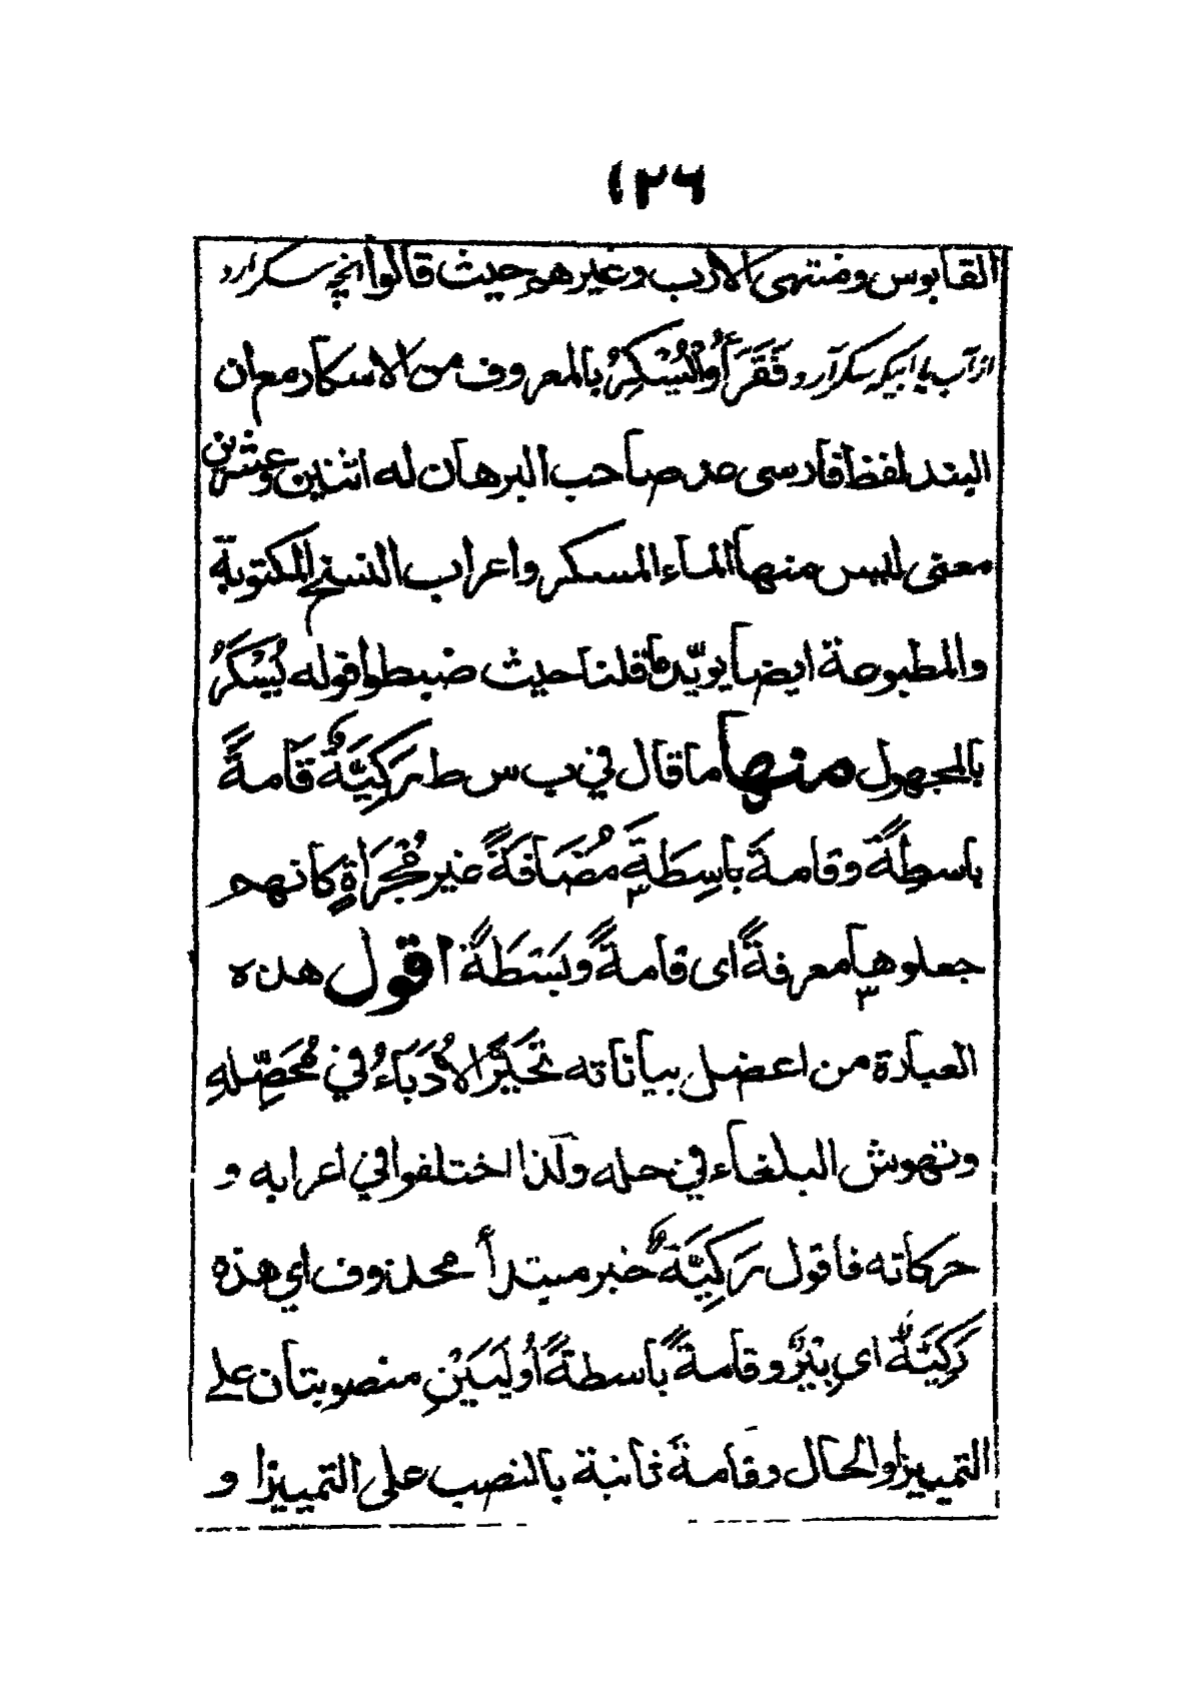 ١٢٦
القابوس ومنتهى الارب وغيرهم حيث قالوا انچه سكر ارد
از آب يا انيكه سكر آرد فَقَرَأ والْيُسْكِرُ بالمعروف من الاسكار مع ان
البند لفظ فارسى عد صاحب البرهان له اثنين وعشرين
معنى ليس منها الماء المسكر واعراب النسخ المكتوبة
والمطبوعة ايضا يويّد ما قلنا حيث ضبطوا قوله يُسْكَرُ
بالمجهول منها ما قال في ب س ط رَكِيَّةٌ قَامةً
باسطةً وقامةَ باسِطَةَ مُضَافَةً غير مُجْراةٍ كانهم
جعلوها معرفةً اى قامةً وبَسَطَةً اقول هذه
العبارة من اعضل بياناته تَحَيَّرَ الاُدَبَاءُ في مُحَصِّلهِ
وتهوش البلغاء في حله ولذا اختلفوا في اعرابه و
حركاته فاقول رَكِيَّةٌ خبر مبتدأ محذوف اي هذه
رَكِيَّةٌ اي بِئرٌ وقامةً باسطةً أُولَيَيْنِ منصوبتان على
التمييز او الحال وقامةَ ثانية بالنصب على التمييز ا و